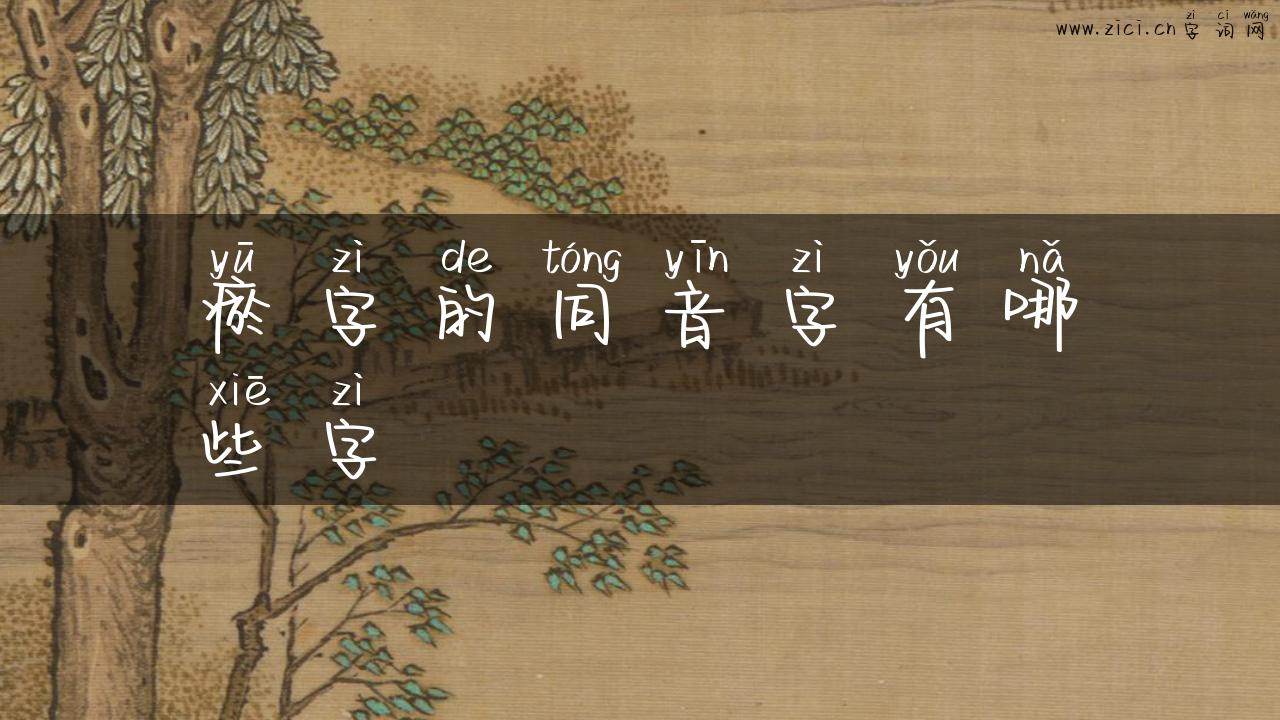 zì cí wǎng
www.zici.cn 字词网
yū zì de tóng yīn zì yǒu nǎ
瘀字的同音字有哪
xiē zì
些字